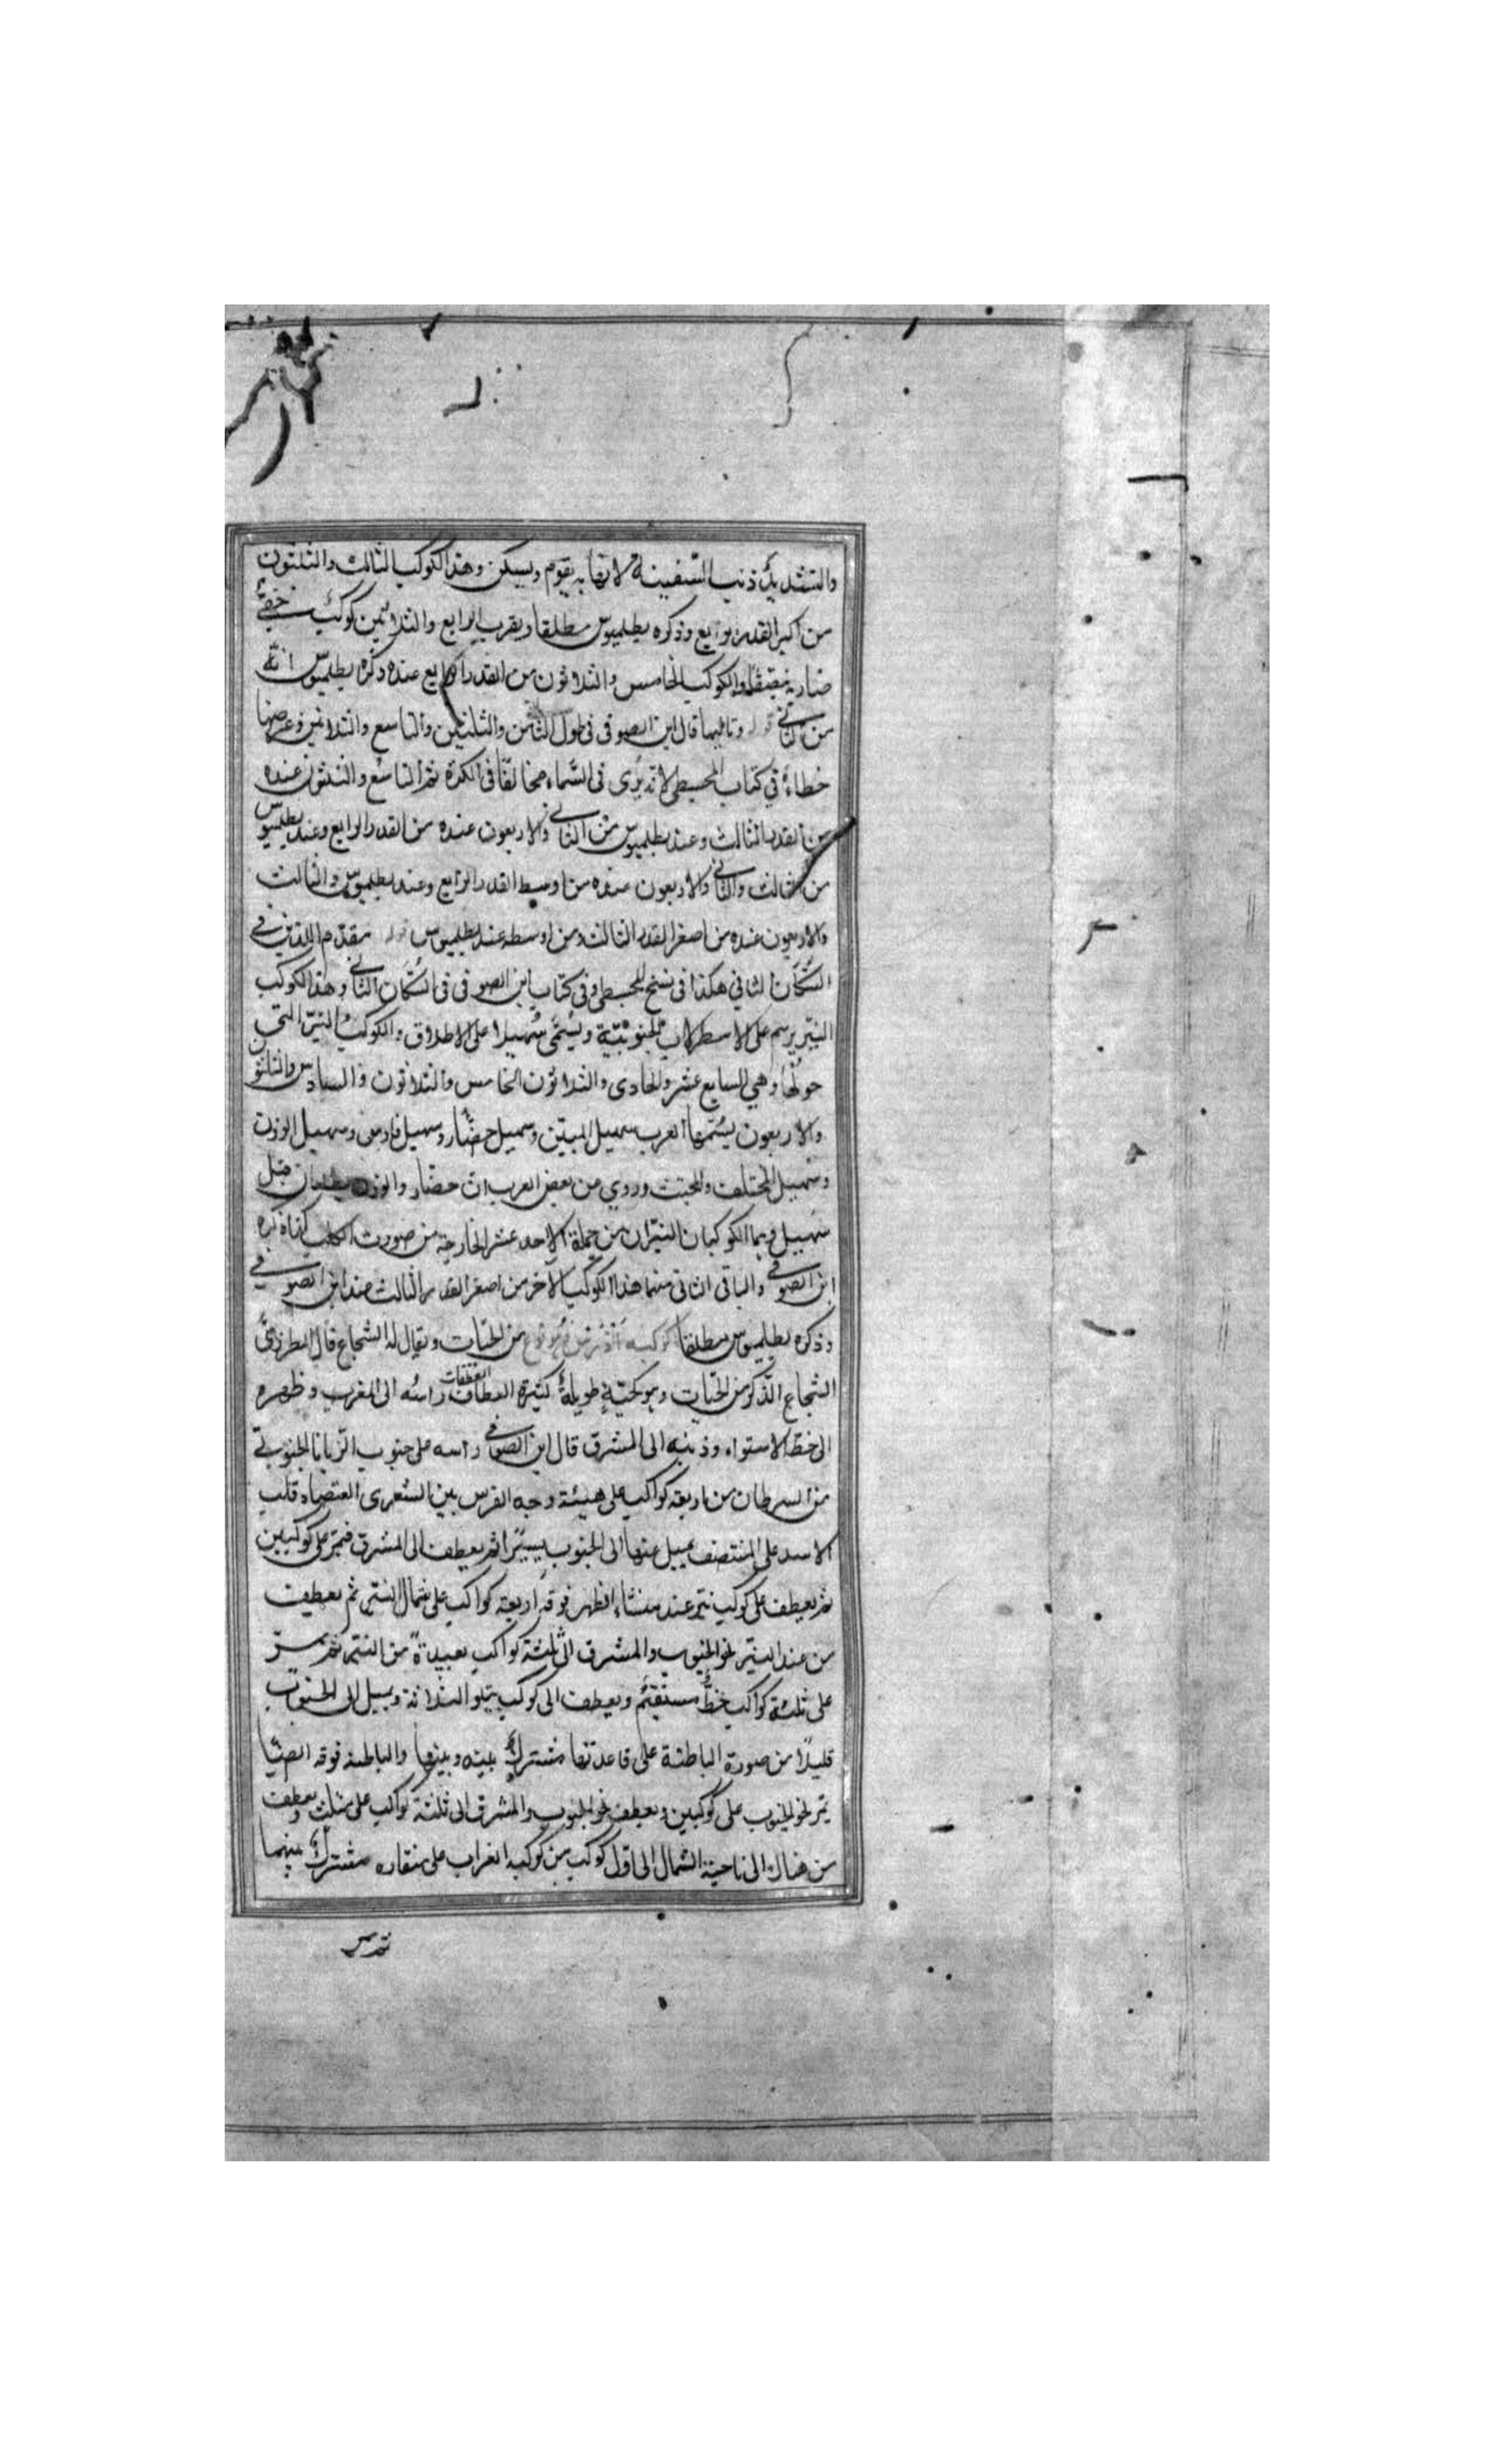 والتشديد ذنب السفينة لانها به يقوم ويسكن وهذا الكوكب الثالث والثلثون
من اكبر القدر الرابع وذكره بطلميوس مطلقا وبقرب الرابع والثلاثين كوكب خفي
والكوكب الخامس والثلاثون من القدر الرابع عنده ذكره بطلميوس انه
من الثاني قوله وتاليها قال ابن الصوفي في طول الثامن والثلثين والتاسع والثلاثين وعرضها
خطاء في كتاب المجسطي لانه يرى في السماء مخالفا في الكرة ثم التاسع والثلثون عنده
من القدر الثالث وعند بطلميوس من الثاني والاربعون عنده من القدر الرابع وعند بطلميوس
من الثالث والثاني والاربعون عنده من اوسط القدر الرابع وعند بطلميوس والثالث
والاربعون عنده من اصغر القدر الثالث ومن اوسطه عند بطلميوس قوله مقدم اللذين في
السكان الثاني هكذا في نسخ المجسطي وفي كتاب ابن الصوفي في السكان الثاني وهذا الكوكب
النير يرسم على الاسطرلاب الجنوبية ويسمى سهيلا على الاطلاق والكوكب النير التي
حولها وهي السابع عشر والحادى والثلاثون الخامس والثلاثون والسادس والثلثون
والاربعون يسميها العرب سهيل المبين وسهيل حضار وسهيل فارس وسهيل الوزن
وسهيل المحتلف والمحنث وروي من بعض العرب ان حضار والوزن يطلعان قبل
سهيل وهما الكوكبان النيران من جملة الاحد عشر الخارجة من صورت الكلب كما ذكره
ابن الصوفي والباقى الثانى منهما هذا الكوكب الاخر من اصغر القدر الثالث عند ابن الصوفي
وذكره بطلميوس مطلقا كوكبه من الحيات ويقال له الشجاع قال المطرزى
الشجاع الذكر من الحيات وهو كحية طويلة كثيرة العطاف العطفات راسه الى المغرب وظهره
الى خط الاستواء وذنبه الى المشرق قال ابن الصوفي راسه على جنوب الزبانا الجنوبي
من السرطان من اربعة كواكب على هيئة وجه الفرس بين الشعرى الغميصاء وقلب
الاسد على المنتصف يميل عنها الى الجنوب يسيرا ثم يعطف الى المشرق فيمر على كوكبين
ثم يعطف على كوكب نير عند منشاء الظهر فوقه اربعة كواكب على شمال النير ثم يعطف
من عند النير نحو الجنوب والمشرق الى ثلثة كواكب بعيدة من النير ثم يمر
على ثلثة كواكب خط مستقيم ويعطف الى كوكب يتلو الثلاثة ويميل الى الجنوب
قليلا من صورة الباطئة على قاعدتها مشترك بينه وبينها والباطئة فوقه ايضا
يمر نحو الجنوب على كوكبين ويعطف نحو الجنوب والمشرق الى ثلثة كواكب على مثلث ويعطف
من هناك الى ناحية الشمال الى اول كوكب من كوكبه الغراب على منقاره مشترك بينهما